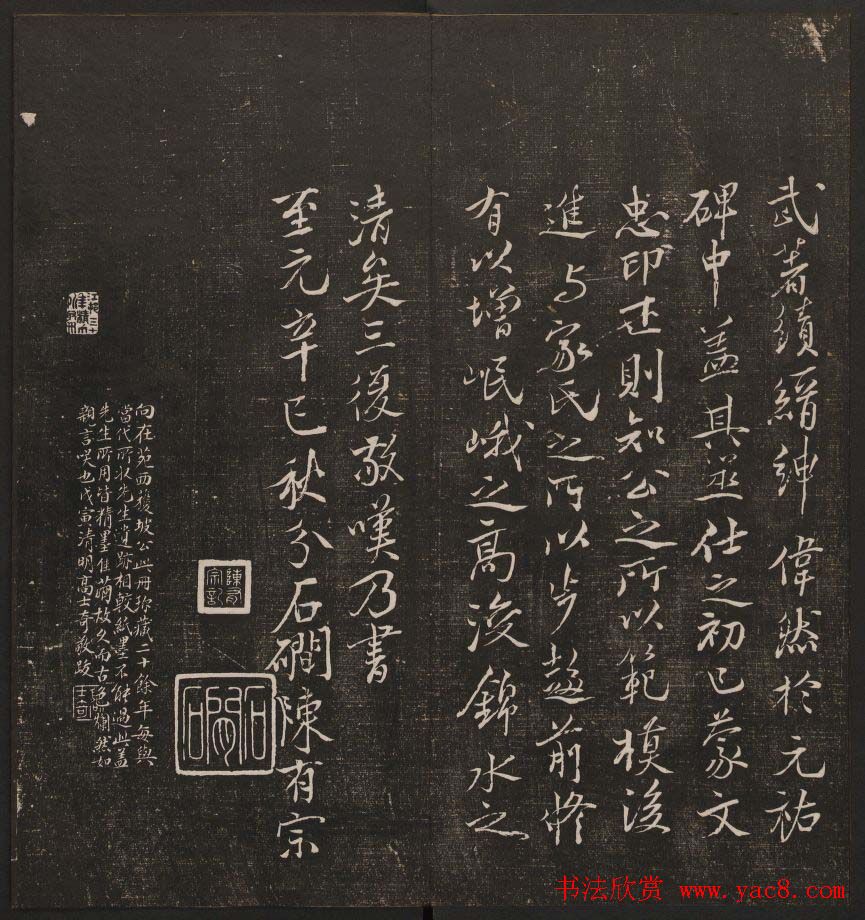 武著績縉紳偉然於元祐
碑中蓋其筮仕之初已蒙文
忠印述則知公之所以範模後
進与家氏之所以步趨前脩
有以增岷峨之高浚錦水之
清矣三復敬嘆乃書
至元辛巳秋分石磵陳有宗
陳有宗
石磵
向在苑西獲坡公此冊珍藏二十餘年每與
當代所收先生遺跡相較紙墨不能過此蓋
先生所用皆精墨佳繭故久而古色爛然如
親言笑也戊寅清明高士奇敬跋
士奇
书法欣赏 www.yac8.com